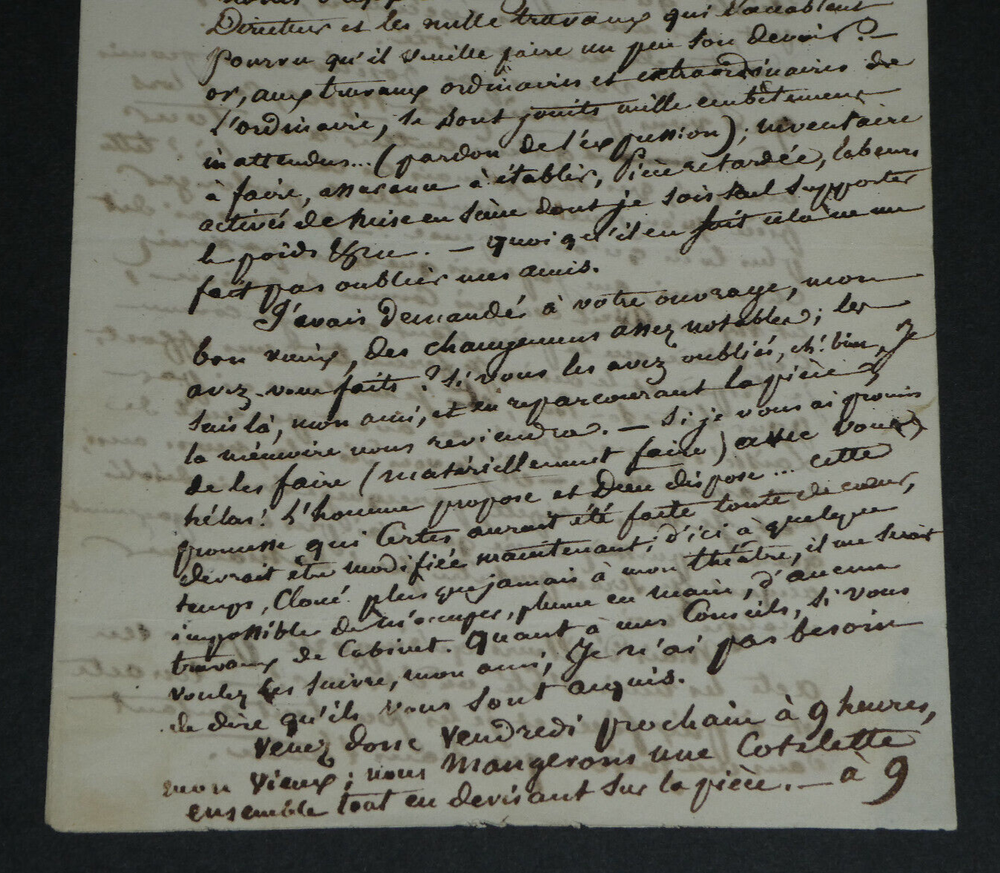 Directeur et les mille travaux qui l'accablent
Pourvu qu'il veuille faire un peu son devoir? —
or, aux travaux ordinaires et extraordinaires de
l'ordinaire, se sont joints mille embêtemens
inattendus... (pardon de l'expression); inventaire
à faire, à établir, pièce retardée, labeurs
actives de mise en scène dont je sois seul supporter
le poids &&. — quoiqu'il en soit cela ne me
fait pas oublier mes amis.
J'avais demandés à votre ouvrage, mon
bon vieux, des changemens assez notables; les
avez-vous faits? Si vous les avez oubliés, eh! bien, Je
suis là, mon ami, et en reparcourant la pièce,
la mémoire nous reviendra. — Si je vous ai promis
de les faire (matériellement faire) avec vous,
hélas! L'homme propose et Dieu dispose... cette
promesse qui Certes aurait été faite toute de cœur,
devrait être modifiée maintenant; d'ici à quelque
temps, Cloué plus que jamais à mon théâtre, il me serait
impossible de m'occuper, plume en main, d'aucuns
travaux de Cabinet. Quant à mes Conseils, Si vous
voulez les suivre, mon ami, Je n'ai pas besoin
de dire qu'ils vous sont acquis.
Venez donc Vendredi prochain à 9 heures,
mon vieux; nous Mangerons une Cotelette
ensemble tout en devisant sur la pièce. — à 9